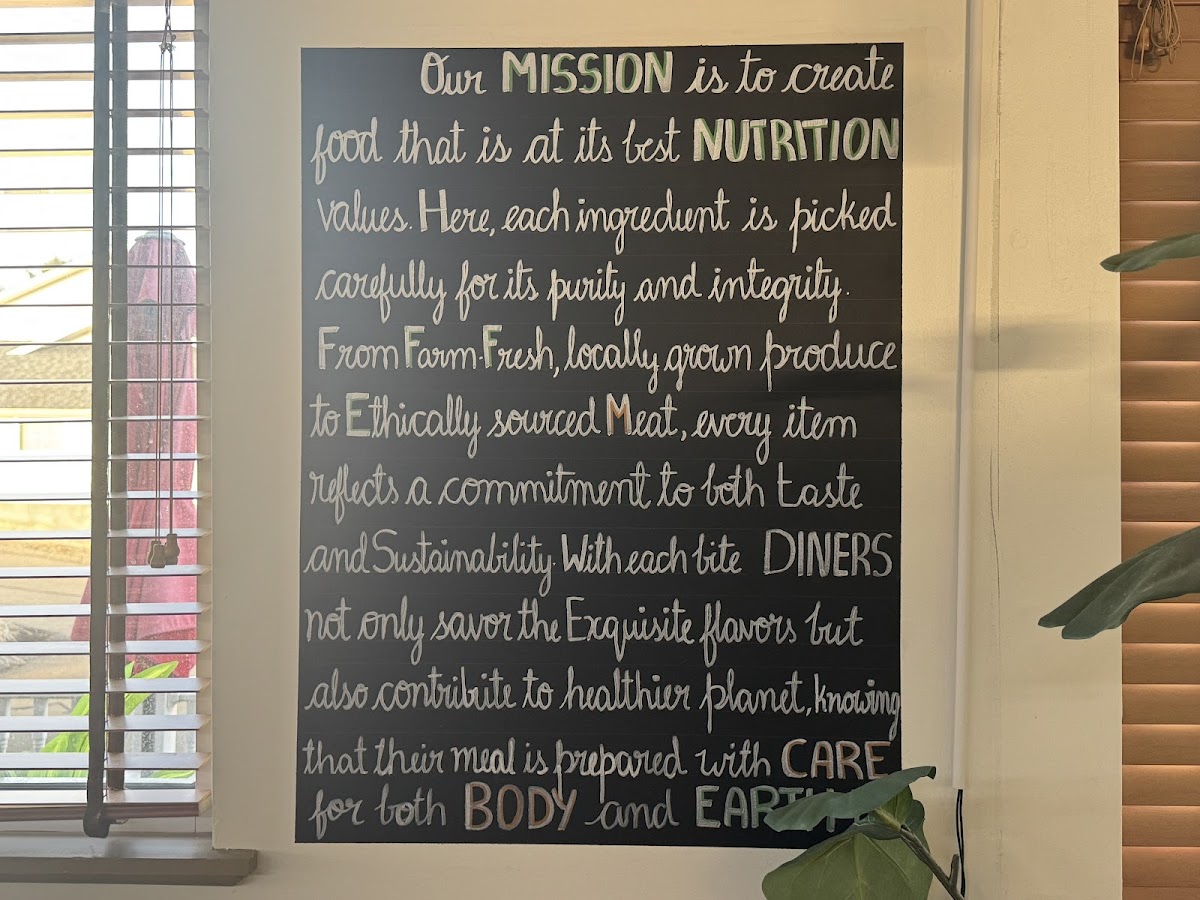 Our MISSION is to create
food that is at its best NUTRITION
values. Here, each ingredient is picked
carefully for its purity and integrity.
From Farm-Fresh, locally grown produce
to Ethically sourced Meat, every item
reflects a commitment to both taste
and Sustainability. With each bite DINERS
not only savor the Exquisite flavors but
also contribite to healthier planet, knowing
that their meal is prepared with CARE
for both BODY and EARTH